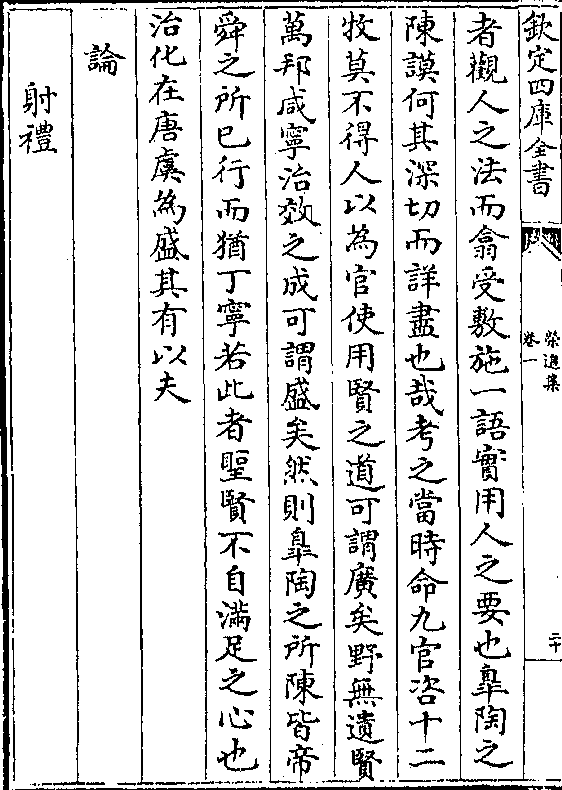 欽定四庫全書
榮進集
卷一
二十
者觀人之法而翕受敷施一語實用人之要也臯陶之
陳謨何其深切而詳盡也哉考之當時命九官咨十二
牧莫不得人以為官使用賢之道可謂廣矣野無遺賢
萬邦咸寧治效之成可謂盛矣然則臯陶之所陳皆帝
舜之所已行而猶丁寧若此者聖賢不自滿足之心也
治化在唐虞為盛其有以夫
論
射禮